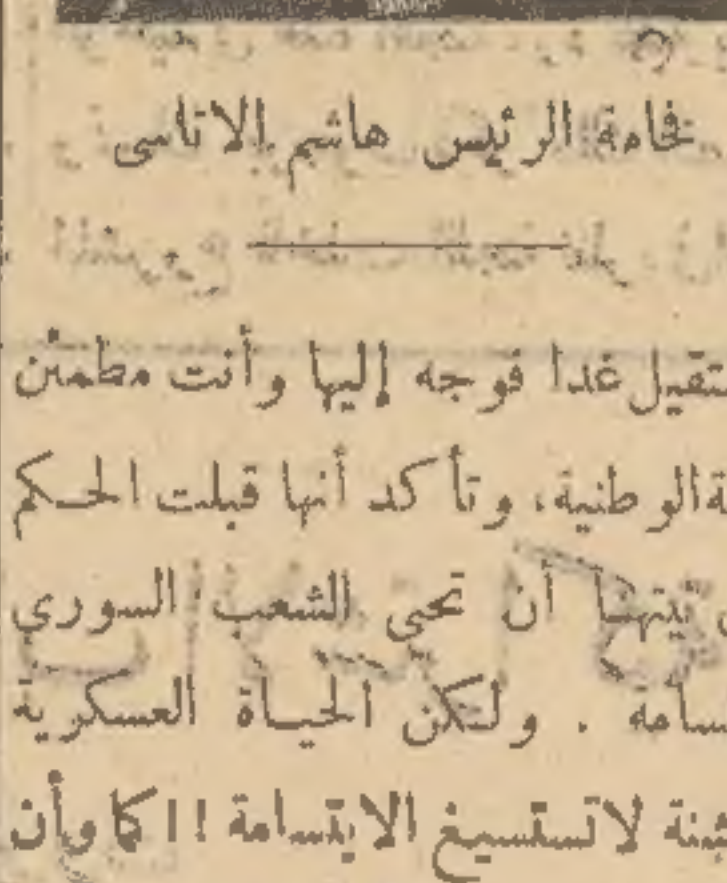 فخامة الرئيس هاشم الاتاسى
غدا فوجه إليها وأنت مطمئن
الوطنية، وتأكد أنها قبلت الحكم
أن تحي الشعب السوري
ولتكن الحياة العسكرية
لاتستسيغ الابتسامة !! كما وأن